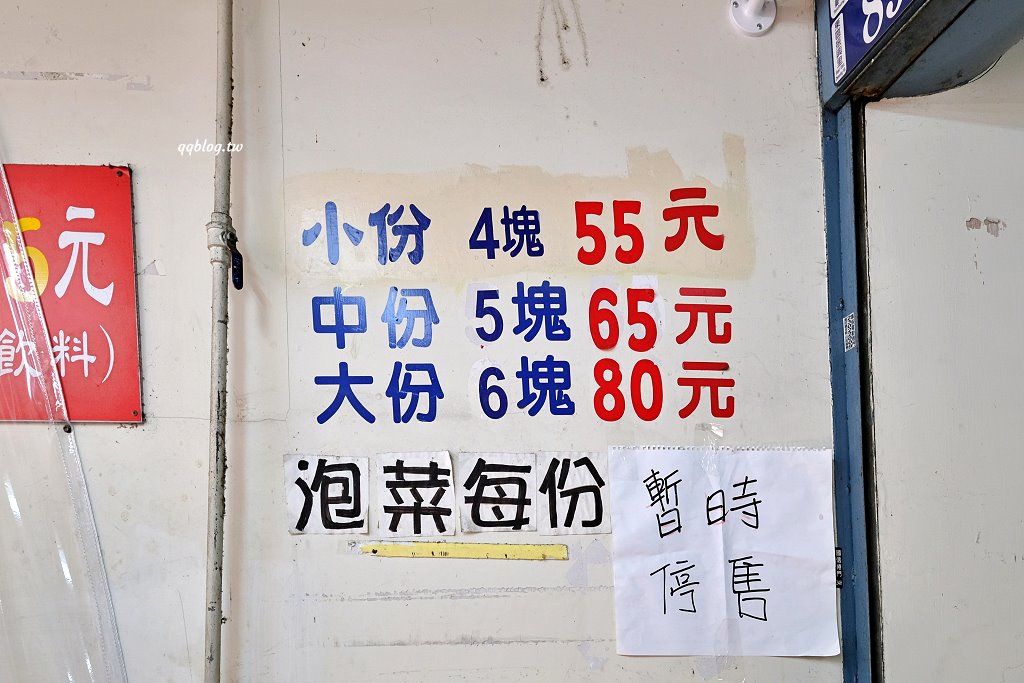 qqblog.tw
5元
飲料)
小份 4塊 55元
中份 5塊 65元
大份 6塊 80元
泡菜每份
暫時
停售